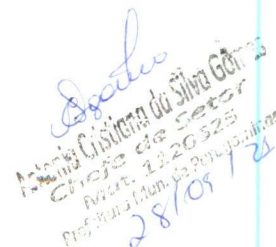 Antonia Cristiana da Silva Gomes
Chefe de Setor
Mat. 1126525
Prefeitura Mun. de
28/09/21